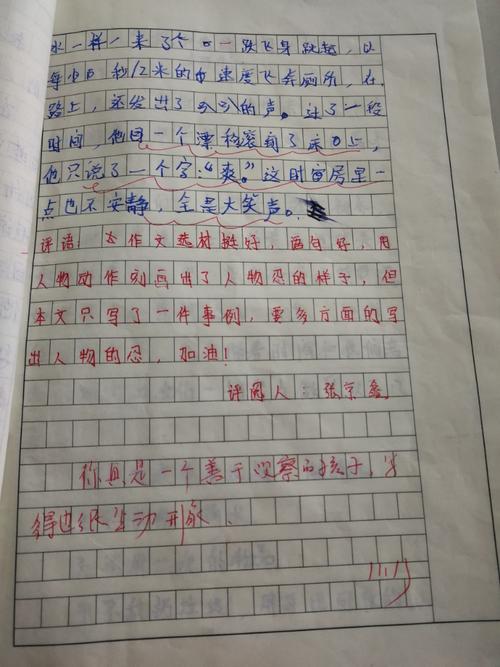 水一样一来了个 一跃飞身跳起,以
每小 秒12米的 速度飞奔厕所,在
路上,还发出了 的声。过了一段
时间,他 一个漂移滚到了床 上,
他只说了一个字:“爽。”这时 房里一
点也不安静,全是大笑声。
评语:本作文选材挺好,语句好,用
人物动作刻画出了人物忍的样子,但
本文只写了一件事例,要多方面的写
出人物的忍,加油!
评阅人:张京鑫
你真是一个善于观察的孩子,写
得也很生动形象。
11.19